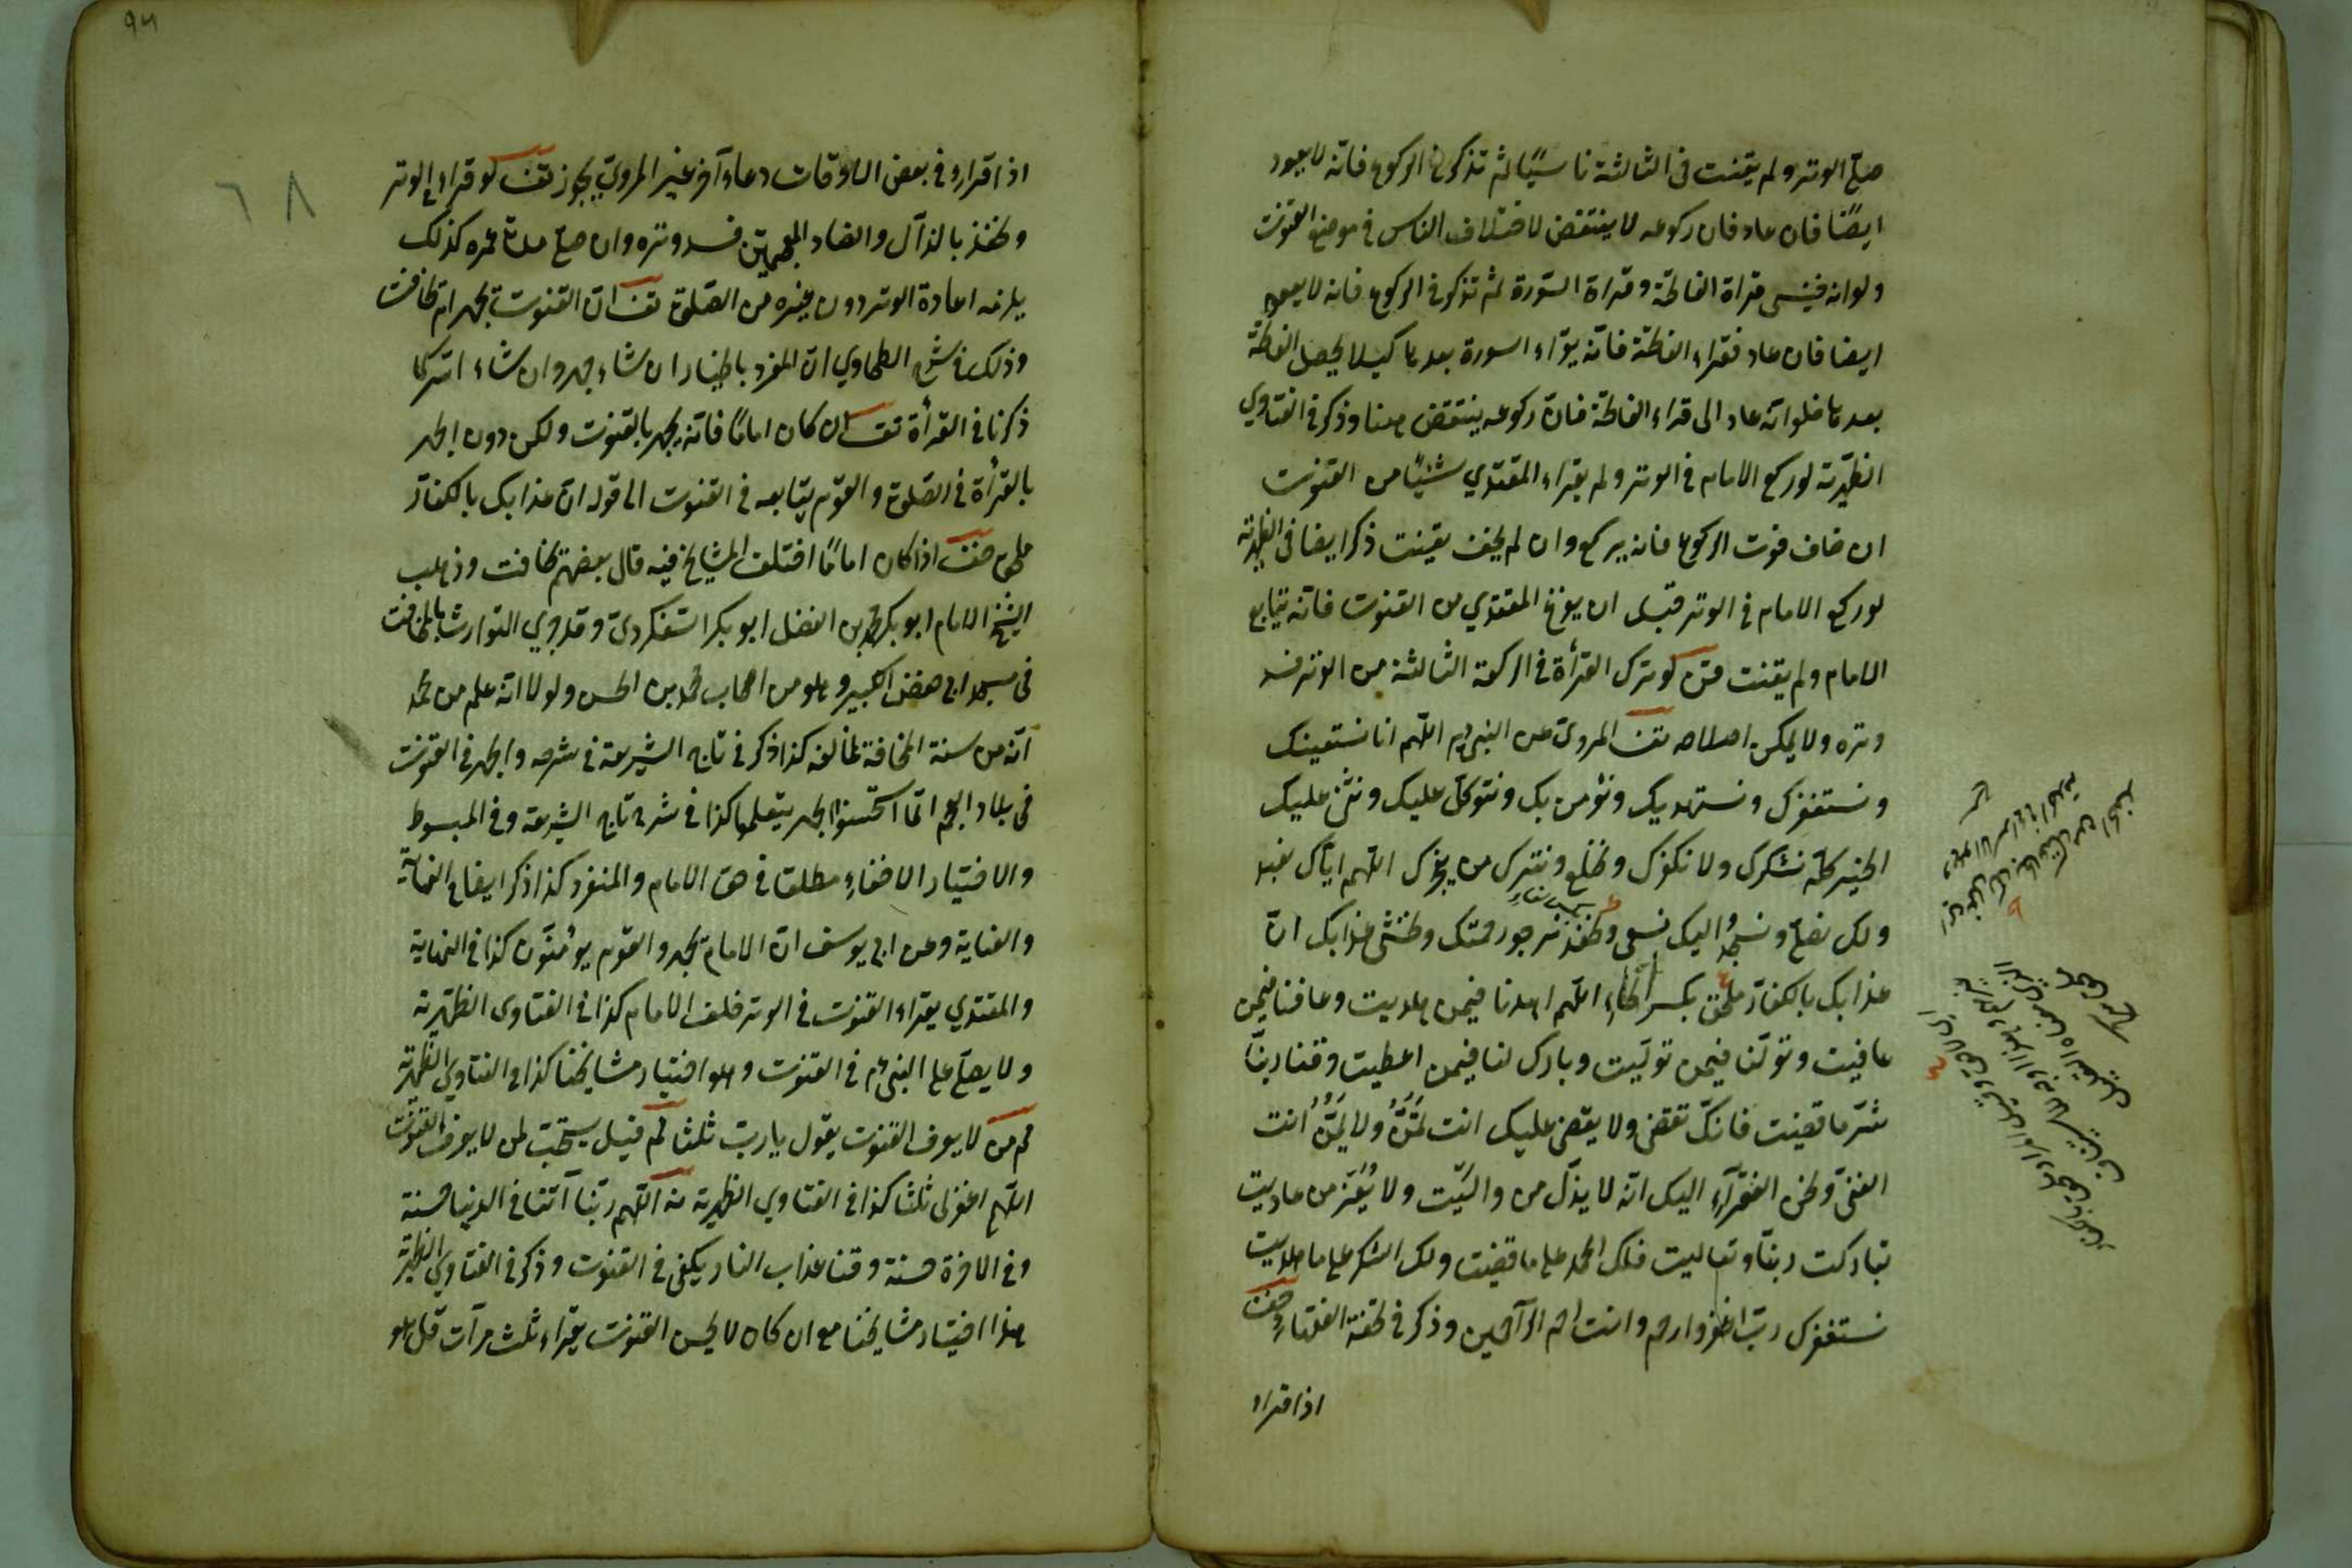 صلى الوتر ولم يقنت فى الثالثة ناسيًا ثم تذكر فى الركوع فانّه لا يعود
ايضًا فان عاد فان ركوعه لا ينتقض لاختلاف الناس فى موضع القنوت
ولو انه فينسى قراة الفاتحة وقراة السّورة ثم تذكر فى الركوع فانه لا يعود
ايضا فان عاد فقراء الفاتحة فانّه يقراء السورة بعدها كيلا يحصل الفاتحة
بعدها فلو انّه عاد الى قراء الفاتحة فانّ ركوعه ينتقض ههنا وذكر فى الفتاوي
الظهّرية لو ركع الامام فى الوتر ولم يقراء المقتدي شيئًا من القنوت
ان خاف فوت الركوع فانه يركع وان لم يخف يقنت ذكر ايضا فى الظهرية
لو ركع الامام فى الوتر قبل ان يفرغ المقتدي من القنوت فانّه يتابع
الامام ولم يقنت لو ترك القرأة فى الركعة الثالثة من الوتر فسد
وتره ولا يمكن اصلاحه تف المروىّ عن النبى عم اللّهم انا نستعينك
ونستغفرك ونستهديك ونؤمن بك ونتوكّل عليك ونثنى عليك
الخير كلّه نشكرك ولا نكفرك ونخلع ونترك من يفجرك اللّهم ايّاك نعبد
ولك نصلّى ونسجد واليك نسعى ونحفد نرجو رحمتك ونخشى عذابك انّ
عذابك بالكفّار ملحق بكسر الحاء اللّهم اهدنا فيمن هديت وعافنا فيمن
عافيت وتولّنا فيمن تولّيت وبارك لنا فيمن اعطيت وقنا ربّنا
شرّ ما قضيت فانك تقضى ولا يقضى عليك انت تمُنُّ ولا يُمَنُّ انت
الغنىّ ونحن الفقرآء اليك انّه لا يذلّ من واليّت ولا يُعَزّ من عاديت
تباركت ربنّا وتعاليت فلك الحمد على ما قضيت ولك الشكر على ما هديت
نستغفرك ربّ اغفر وارحم وانت ارحم الرّآحمين وذكر فى تحفة الفقهاء
اذا قراء
٦٨
اذا قراء فى بعض الاوقات دعاء آخر غير المروىّ يجوز تف لو قراء فى الوتر
ونحفذ بالذآل والضاد المعجمتين فسد وتره وان صلى مدة عمره كذلك
يلزمه اعادة الوتر دون غيره من الصّلوة تف انّ القنوت يجهر ام يخافت
وذكر فى شرح الطحاوي انّ المفرد بالخيار ان شاء جهر وان شاء اسّر كما
ذكرنا فى القرأة تف ان كان امامًا فانّه يجهر بالقنوت ولكن دون الجهر
بالقرأة فى الصّلوة والقوم يتابعه فى القنوت الى قوله انّ عذابك بالكفّار
ملحق اذا كان امامًا اختلف المشايخ فيه قال بعضهم يخافت وذهب
الشيخ الامام ابو بكر محمد بن الفضل ابو بكر وقد روي التوارث بالمخافت
فى مسجد ابى حفص الكبير وهو من اصحاب محمد بن الحسن ولولا انّه علم من محمد
انّه من سنة المخافتة لخالفه كذا ذكر فى تاج الشريعة فى شرحه والجهر فى القنوت
فى بلاد العجم انّما استحسنوا الجهر يتعلموا كذا فى شرح تاج الشريعة وفى المبسوط
والاختيار الاخفاء مطلقا فى حق الامام والمنفرد كذا ذكر ايضا فى النهاية
والعناية وعن ابى يوسف انّ الامام يجهر والقوم يؤمّنون كذا فى النهاية
والمقتدي يقراء القنوت فى الوتر خلف الامام كذا فى الفتاوى الظهّيرية
ولا يصلّى على النبى عم فى القنوت وهو اختيار مشايخنا كذا فى الفتاوي الظّهرية
من لا يعرف القنوت يقول يا ربّ ثلثا قيل يستحبّ لمن لا يعرف القنوت
اللّهم اغفر لى ثلثا كذا فى الفتاوي الظهرية اللّهم ربّنا آتنا فى الدنيا حسنة
وفى الاخرة حسنة وقنا عذاب النار يكفى فى القنوت وذكر فى الفتاوي الظهرية
هذا اختيار مشايخنا مع ان كان لا يحسن القنوت يقراء ثلث مرآت قل هو